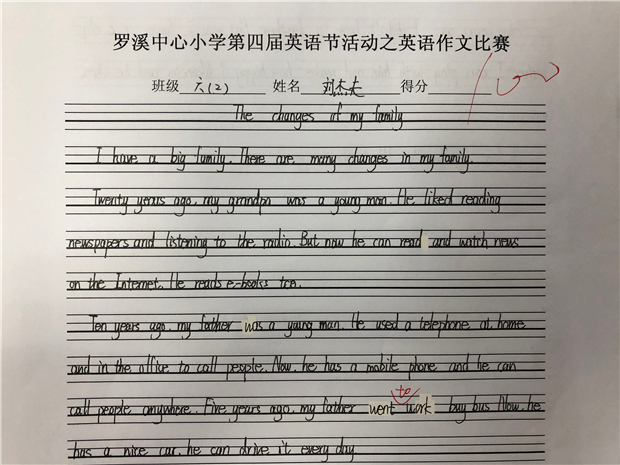 罗溪中心小学第四届英语节活动之英语作文比赛
班级 六(2) 姓名 刘杰夫 得分 100
The changes of my family
I have a big family. There are many changes in my family.
Twenty years ago, my grandpa was a young man. He liked reading
newspapers and listening to the radio. But now he can read and watch news
on the Internet. He reads e-books too.
Ten years ago, my father was a young man. He used a telephone at home
and in the office to call people. Now, he has a mobile phone and he can
to
call people anywhere. Five years ago, my father went work buy bus. Now, he
has a nice car, he can drive it every day